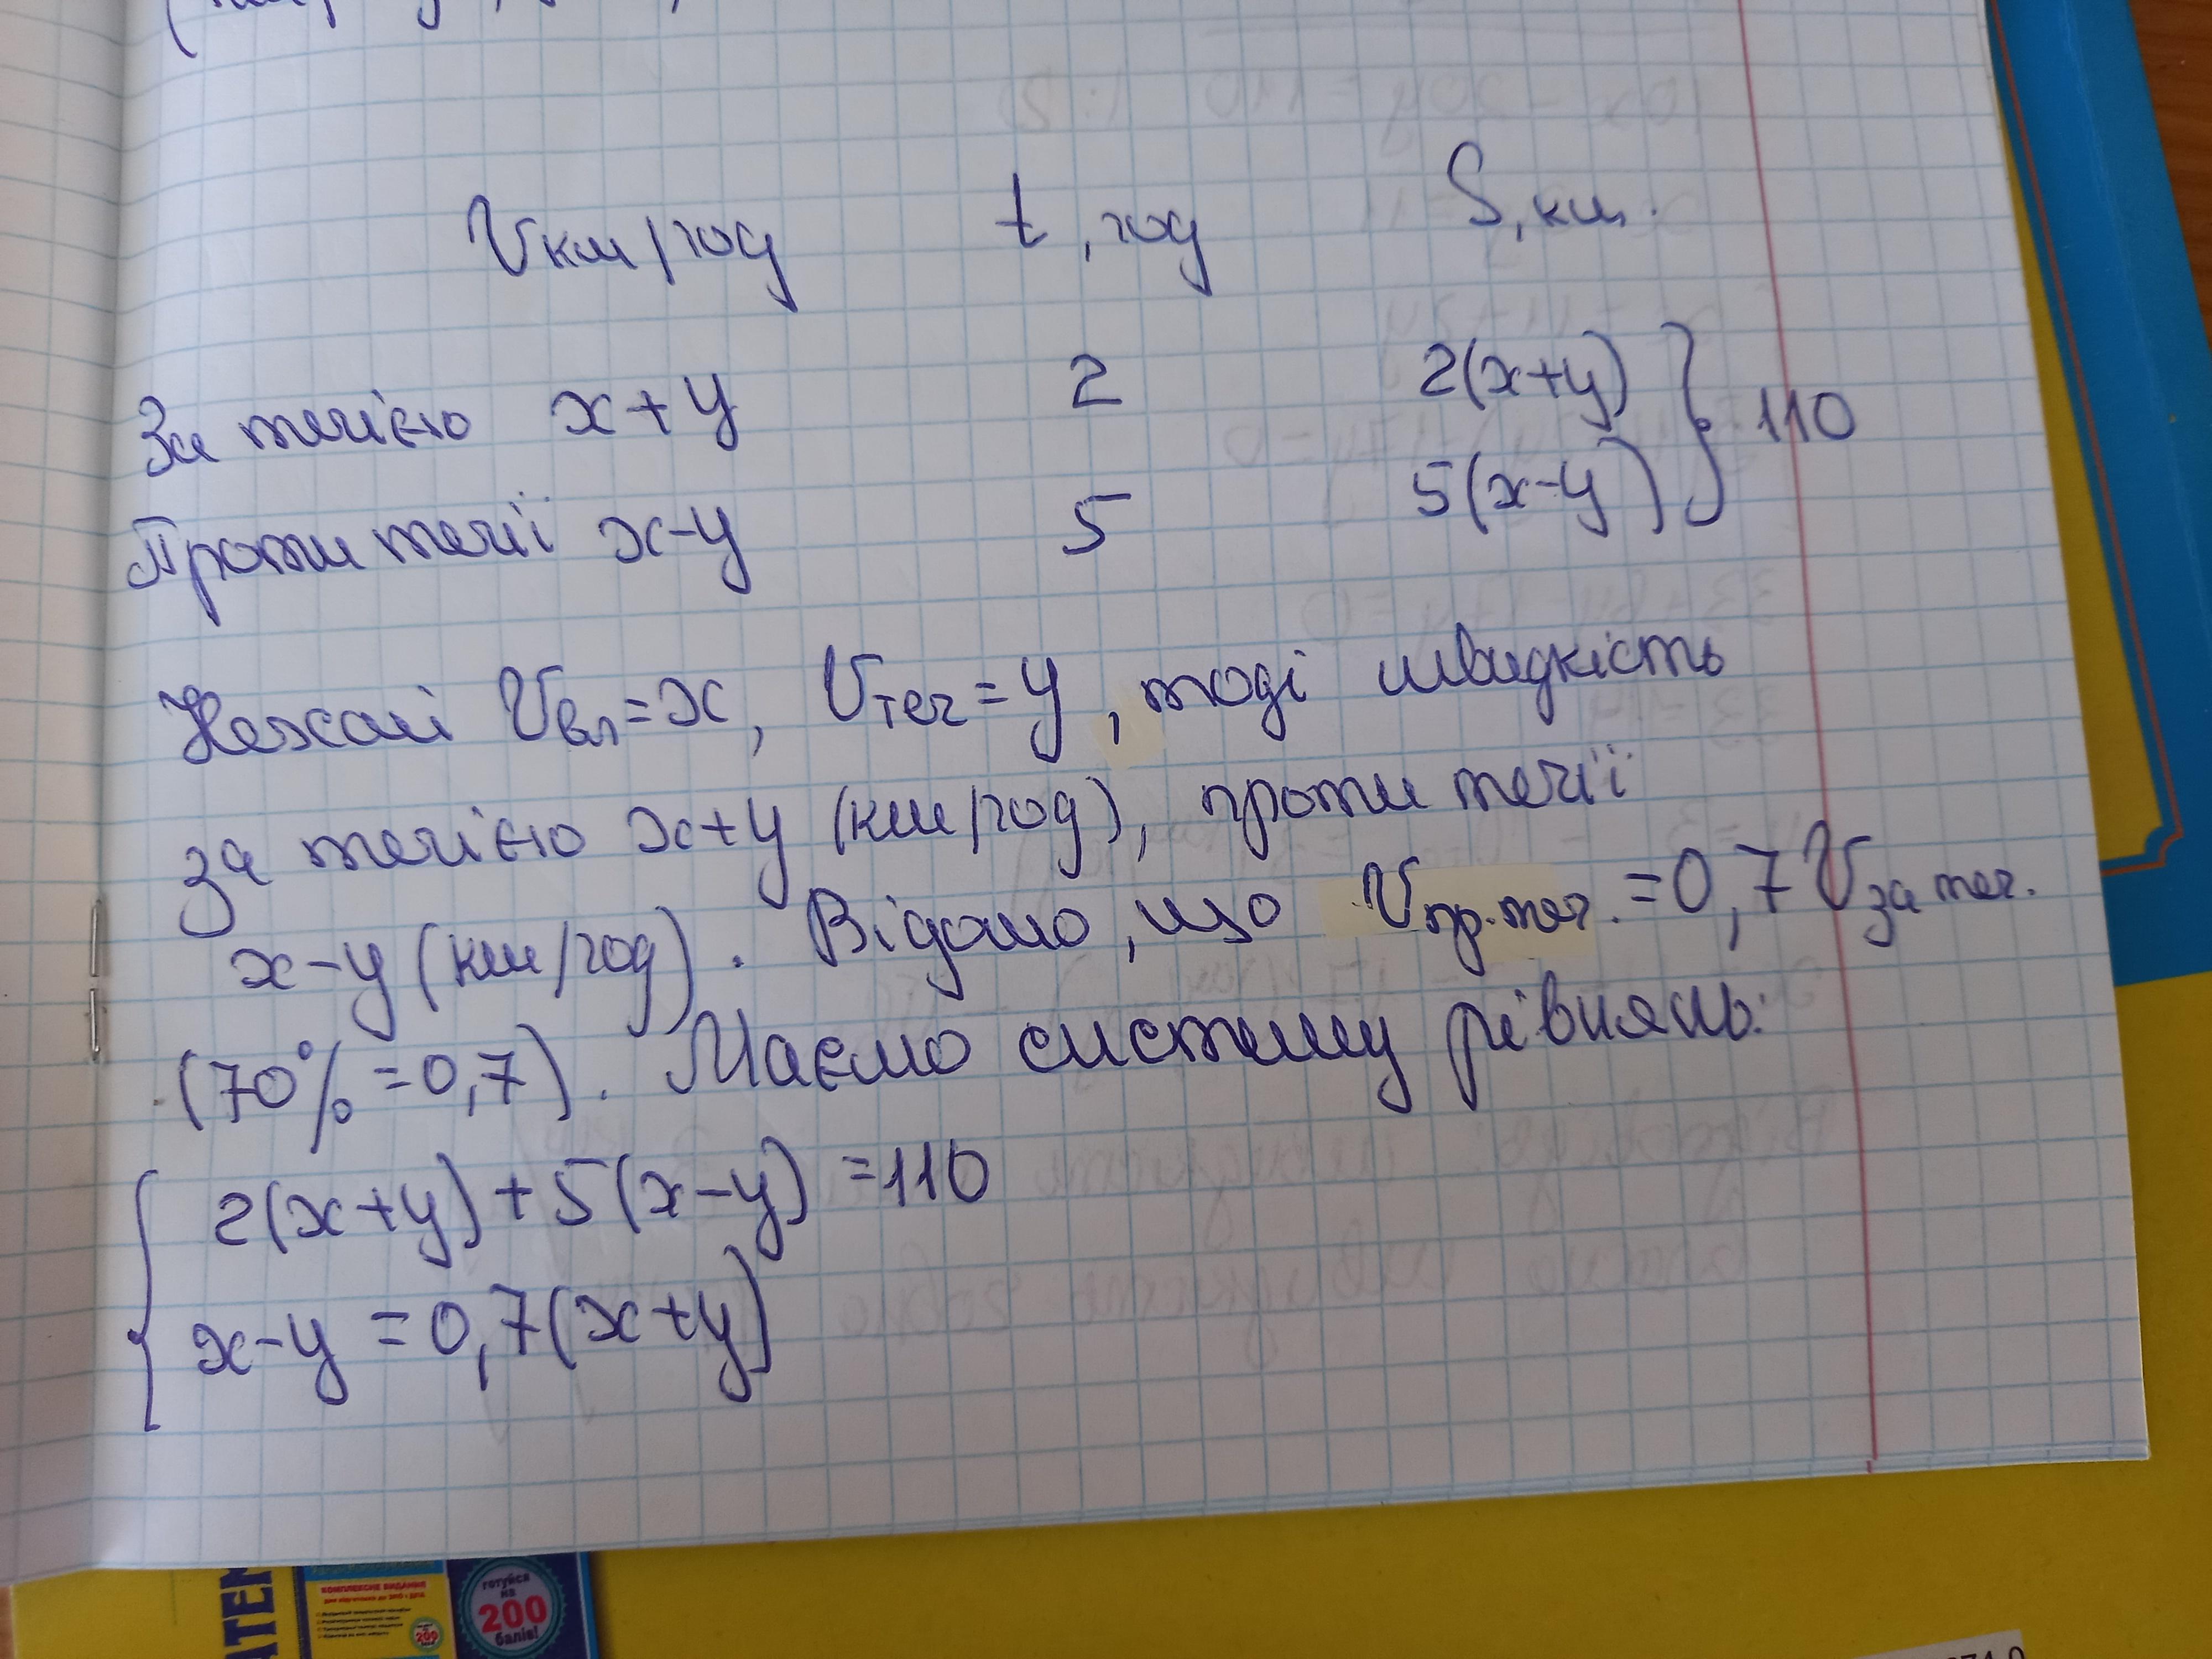 Vкм/год t, год S, км.
За течією x+y 2 2(x+y) } 110
Проти течії x-y 5 5(x-y)
Нехай Vвл=x, Vтеч=y, тоді швидкість
за течією x+y (км/год), проти течії
x-y (км/год). Відомо, що Vпр.теч.=0,7Vза теч.
(70%=0,7). Маємо систему рівнянь:
{ 2(x+y)+5(x-y)=110
x-y=0,7(x+y)
АТЕМ
КОМПЛЕКСНЕ ВИДАННЯ
200
готуйся
на
200
балів!